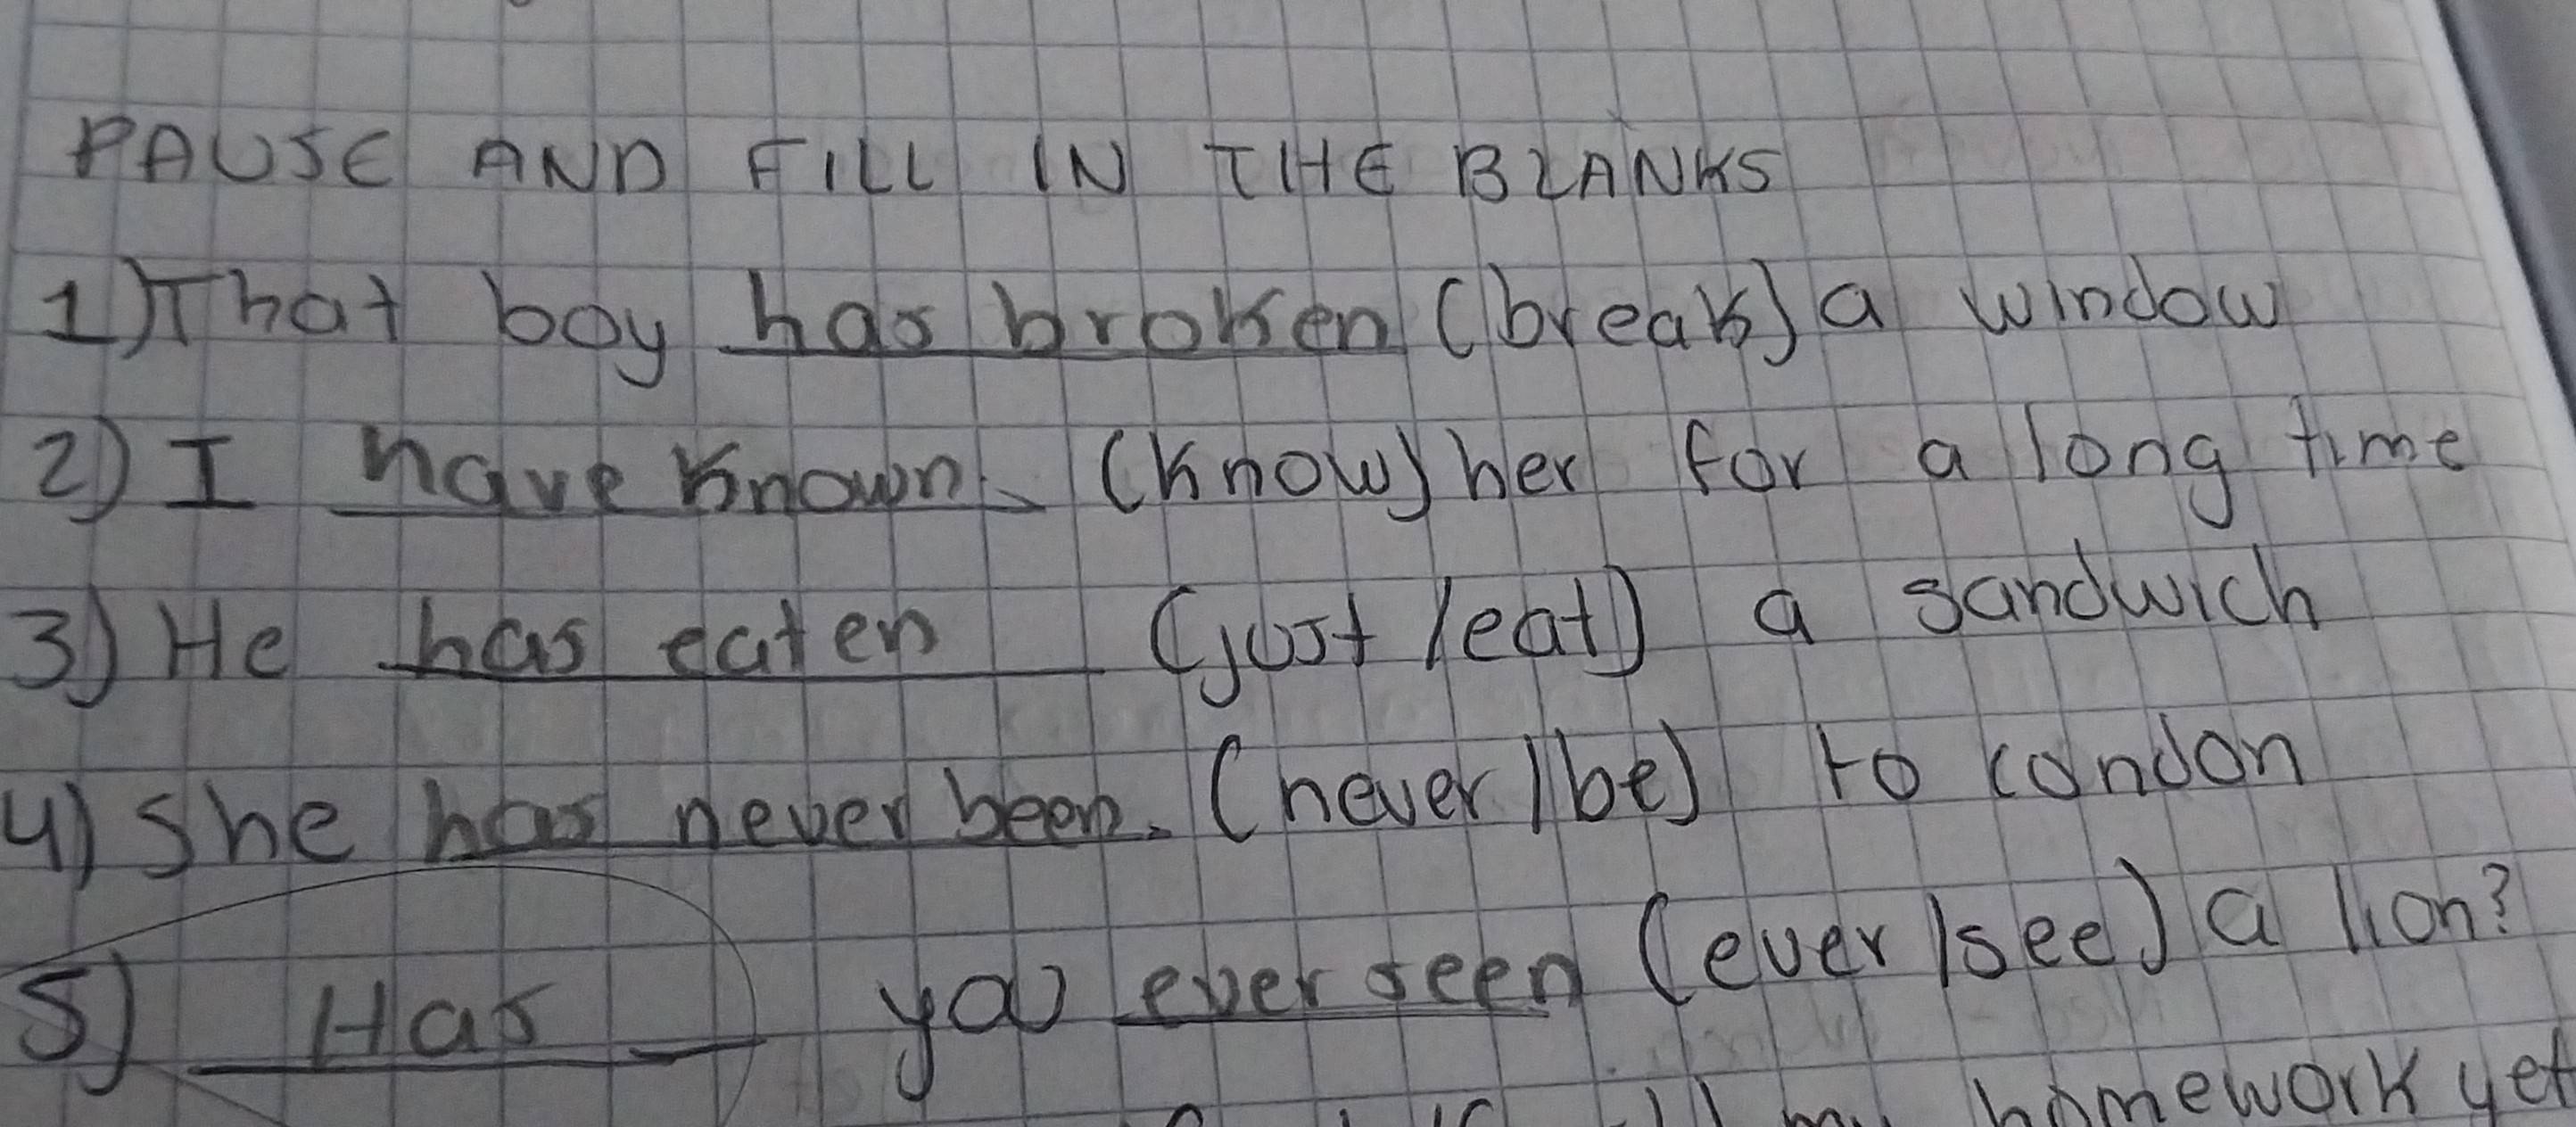 PAUSE AND FILL IN THE BLANKS
1) That boy has broken (break) a window
2) I have known (know) her for a long time
3) He has eaten (just/eat) a sandwich
4) She has never been. (never/be) to London
5) Has you ever seen (ever/see) a lion?
my homework yet